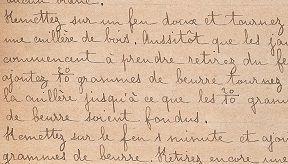 aucun blanc.
Remettez sur un feu doux et tournez
une cuillère de bois. Aussitôt que les jau
commencent à prendre retirez du fe
ajoutez 20 grammes de beurre tournez
la cuillère jusqu'à ce que les 20 gramm
de beurre soient fondus.
Remettez sur le feu 1 minute et ajou
grammes de beurre. Retirez encore